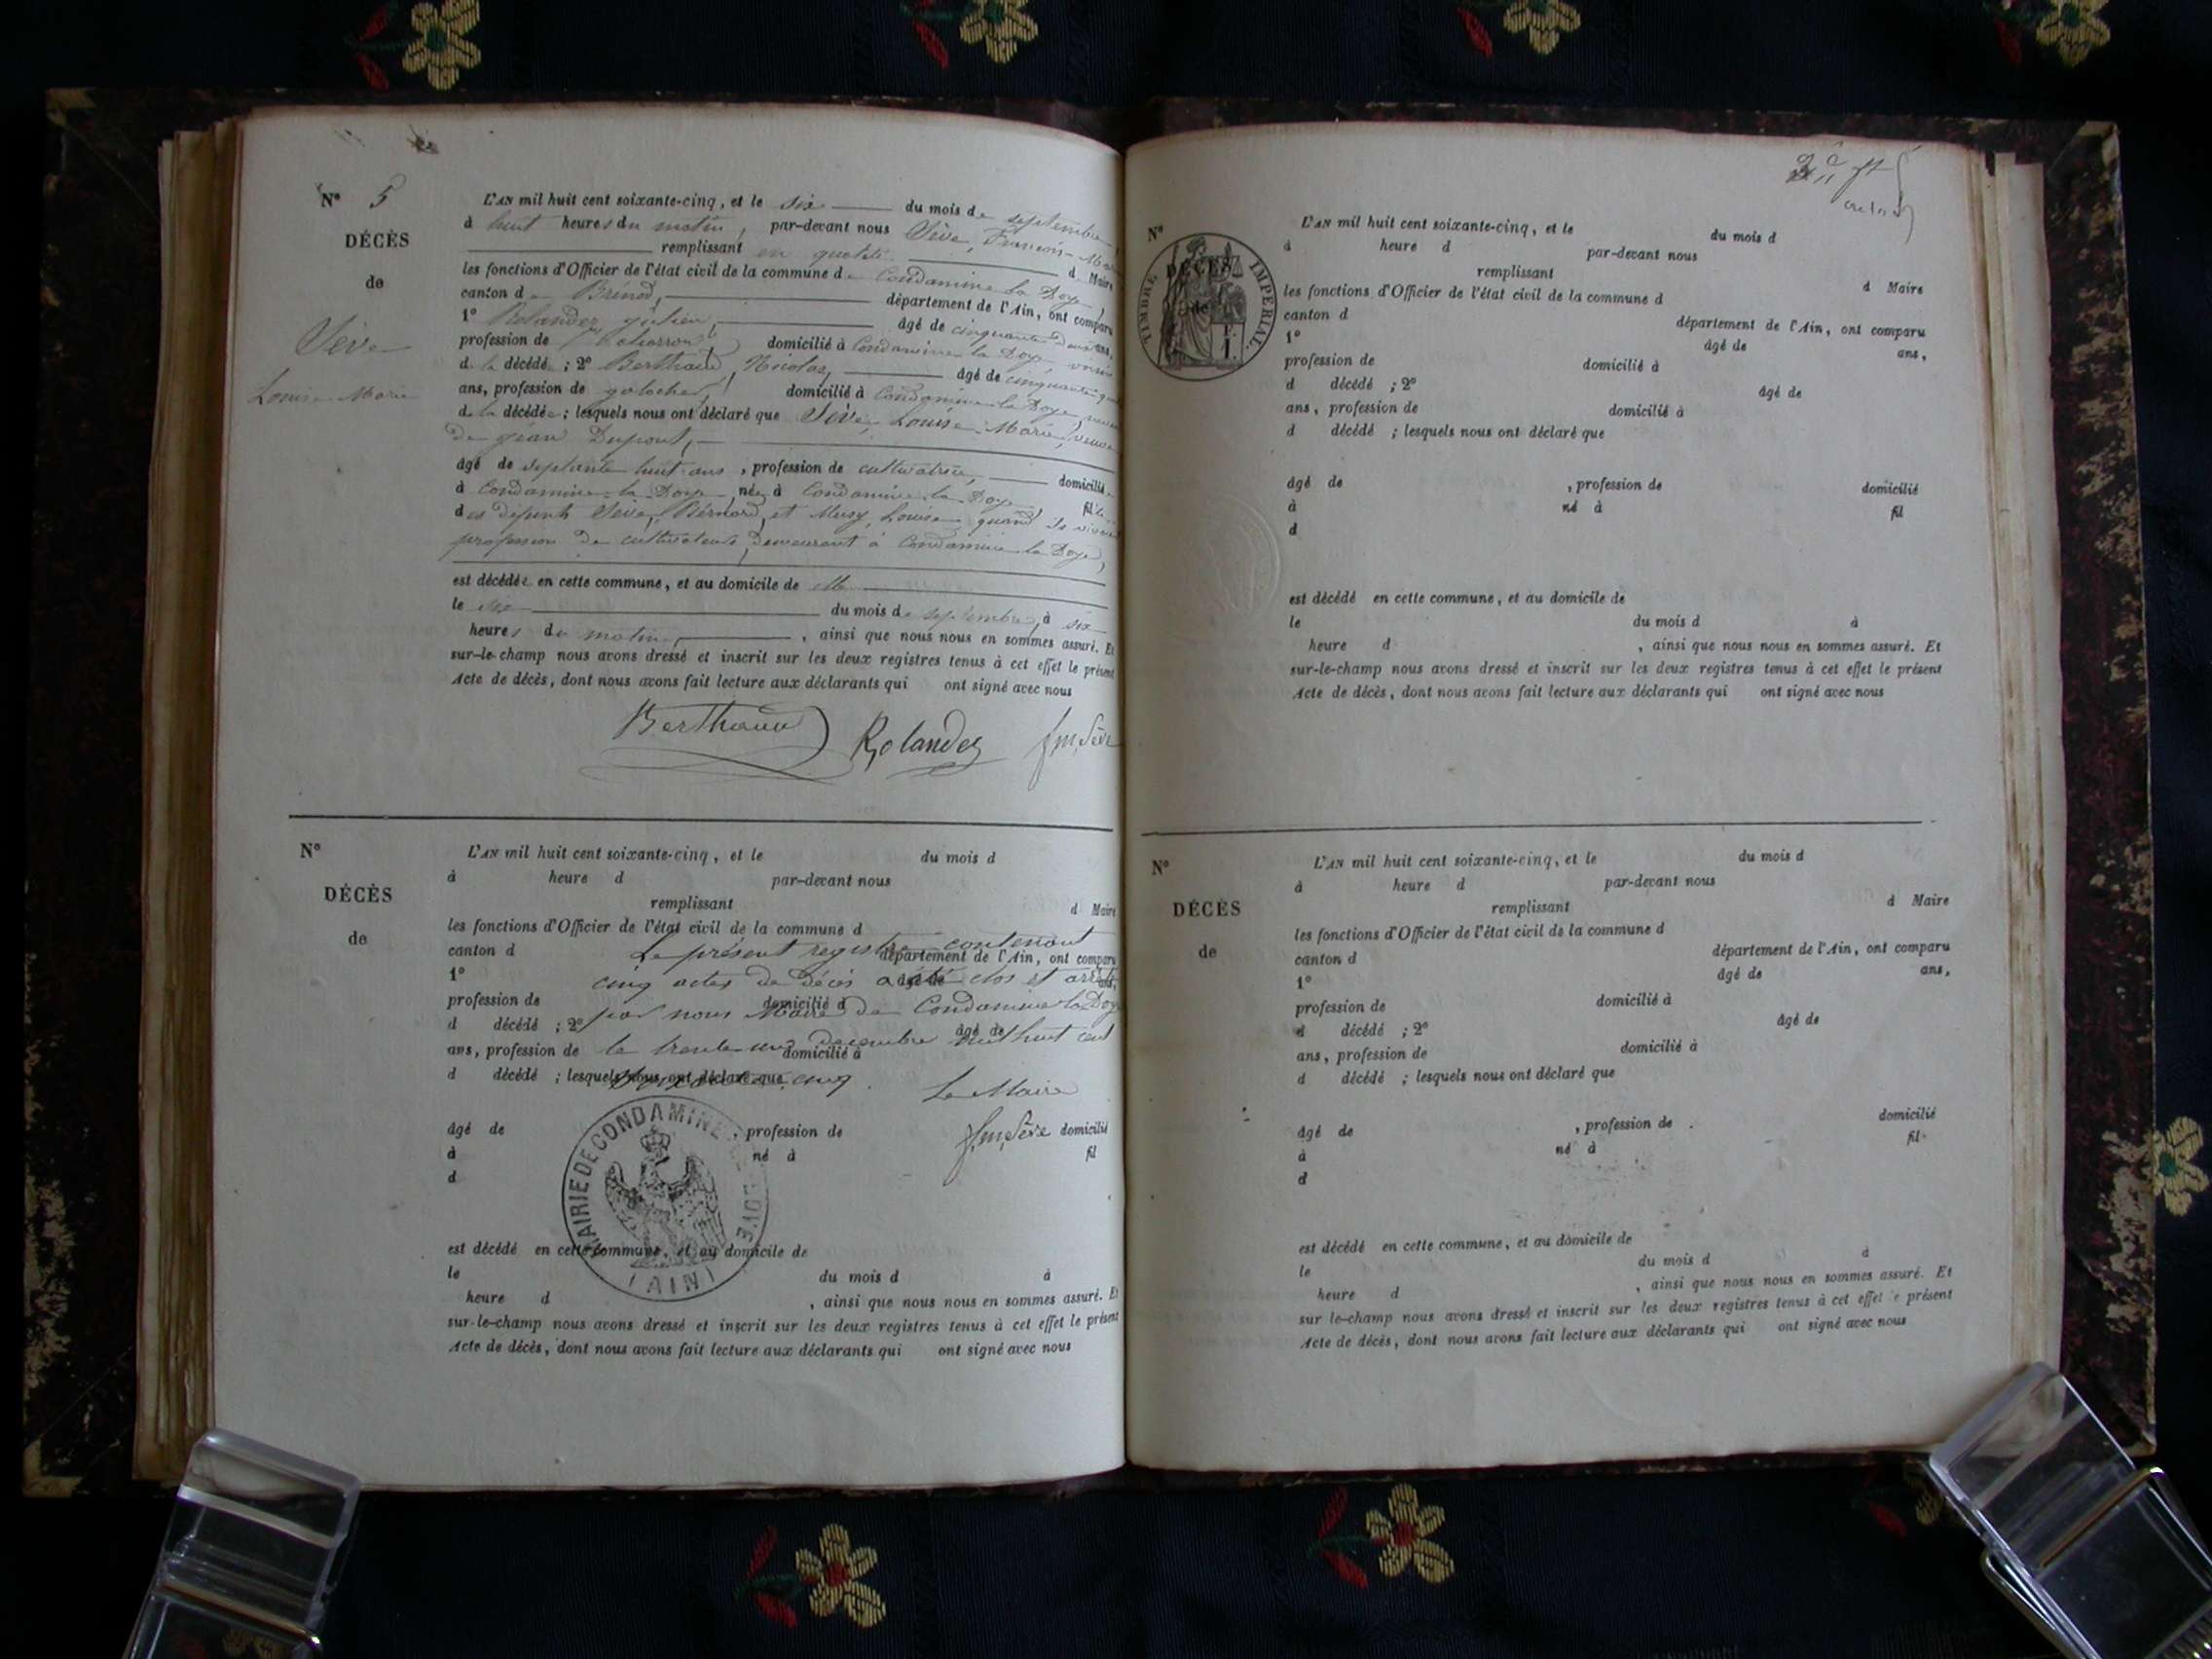 N° 5
DÉCÈS
de
Sève
Louise Marie
L'AN mil huit cent soixante-cinq, et le six du mois de septembre
à huit heures du matin, par-devant nous Sève, François-Marie
remplissant en qualité d Maire
les fonctions d'Officier de l'état civil de la commune de Condamine la Doye,
canton de Brénod, département de l'Ain, ont comparu
1° Rolandez, Julien, âgé de cinquante deux ans,
profession de domicilié à Condamine la Doye, voisin
d la décédée ; 2° Berthaud, Nicolas, âgé de cinquante
ans, profession de galocher, domicilié à Condamine la Doye,
de la décédée ; lesquels nous ont déclaré que Sève, Louise Marie, veuve
de Jean Dupont,
âgé de septante huit ans, profession de cultivatrice, domiciliée
à Condamine la Doye, née à Condamine la Doye, fille
des défunts Sève, Bernard, et Musy, Louise, quand ils vivaient
profession de cultivateurs, demeurant à Condamine la Doye,
est décédée en cette commune, et au domicile de elle
le six du mois de septembre, à six
heures du matin, ainsi que nous nous en sommes assuré. Et
sur-le-champ nous avons dressé et inscrit sur les deux registres tenus à cet effet le présent
Acte de décès, dont nous avons fait lecture aux déclarants qui ont signé avec nous
Berthaud Rolandez fm, Sève
N°
DÉCÈS
de
L'AN mil huit cent soixante-cinq, et le du mois d
à heure d par-devant nous
remplissant d Maire
les fonctions d'Officier de l'état civil de la commune d
Le présent registre contenant
canton d département de l'Ain, ont comparu
cinq actes de décès a été clos et arrêté
1° âgé de ans,
par nous Maire de Condamine la Doye
profession de domicilié à
d décédé ; 2° âgé de
le trente un décembre mil huit cent
ans, profession de domicilié à
soixante cinq.
d décédé ; lesquels nous ont déclaré que
Le Maire
fm, Sève
âgé de , profession de domicilié
à né à fil
d
MAIRIE DE CONDAMINE LA DOYE
(AIN)
est décédé en cette commune, et au domicile de
le du mois d à
heure d , ainsi que nous nous en sommes assuré. Et
sur-le-champ nous avons dressé et inscrit sur les deux registres tenus à cet effet le présent
Acte de décès, dont nous avons fait lecture aux déclarants qui ont signé avec nous
N°
DÉCÈS
de
TIMBRE IMPÉRIAL.
L'AN mil huit cent soixante-cinq, et le du mois d
à heure d par-devant nous
remplissant d Maire
les fonctions d'Officier de l'état civil de la commune d
canton d département de l'Ain, ont comparu
1° âgé de ans,
profession de domicilié à
d décédé ; 2° âgé de
ans, profession de domicilié à
d décédé ; lesquels nous ont déclaré que
âgé de , profession de domicilié
à né à fil
d
est décédé en cette commune, et au domicile de
le du mois d à
heure d , ainsi que nous nous en sommes assuré. Et
sur-le-champ nous avons dressé et inscrit sur les deux registres tenus à cet effet le présent
Acte de décès, dont nous avons fait lecture aux déclarants qui ont signé avec nous
N°
DÉCÈS
de
L'AN mil huit cent soixante-cinq, et le du mois d
à heure d par-devant nous
remplissant d Maire
les fonctions d'Officier de l'état civil de la commune d
canton d département de l'Ain, ont comparu
1° âgé de ans,
profession de domicilié à
d décédé ; 2° âgé de
ans, profession de domicilié à
d décédé ; lesquels nous ont déclaré que
âgé de , profession de domicilié
à né à fil
d
est décédé en cette commune, et au domicile de
le du mois d à
heure d , ainsi que nous nous en sommes assuré. Et
sur le-champ nous avons dressé et inscrit sur les deux registres tenus à cet effet le présent
Acte de décès, dont nous avons fait lecture aux déclarants qui ont signé avec nous